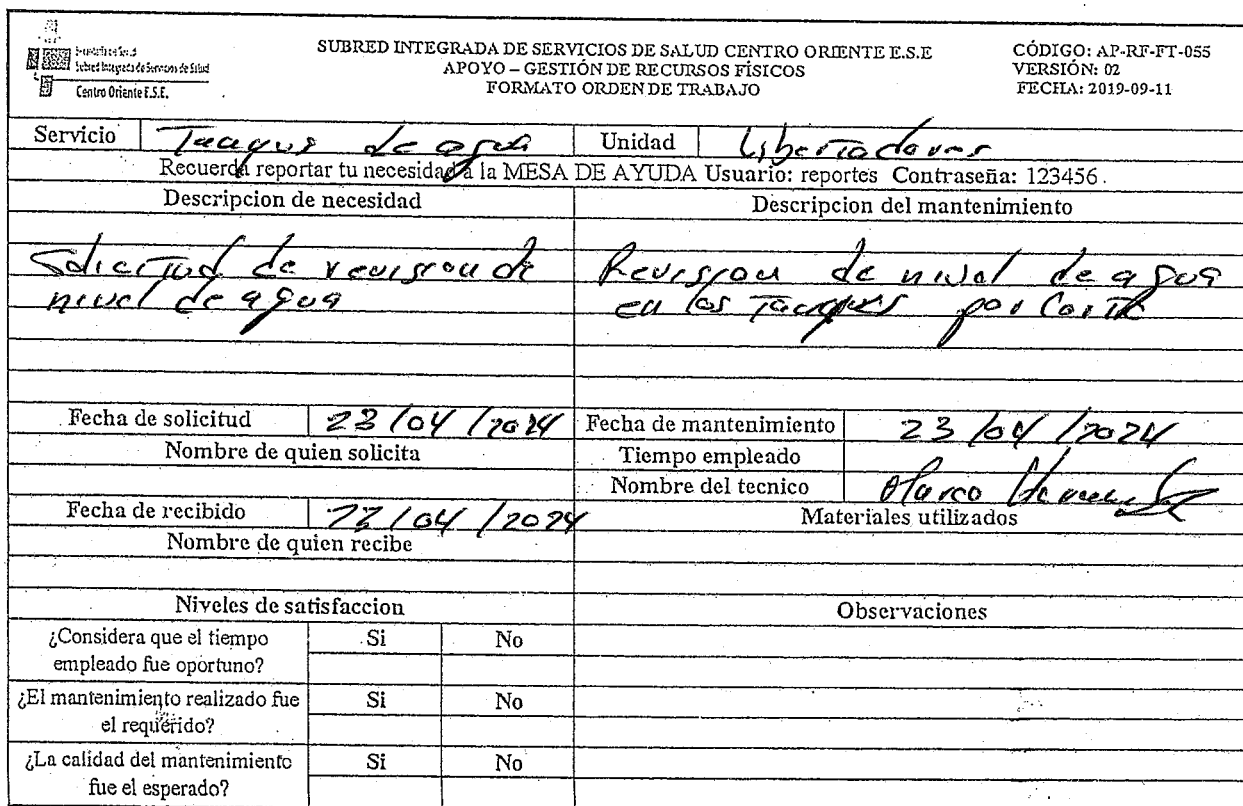 Subred Integrada de Servicios de Salud
Centro Oriente E.S.E.
SUBRED INTEGRADA DE SERVICIOS DE SALUD CENTRO ORIENTE E.S.E
APOYO – GESTIÓN DE RECURSOS FÍSICOS
FORMATO ORDEN DE TRABAJO
CÓDIGO: AP-RF-FT-055
VERSIÓN: 02
FECHA: 2019-09-11
Servicio Tanque de agua Unidad Libertadores
Recuerda reportar tu necesidad a la MESA DE AYUDA Usuario: reportes Contraseña: 123456.
Descripcion de necesidad
Solicitud de revision de
nivel de agua
Descripcion del mantenimiento
Revision de nivel de agua
en los Tanques por Corte
Fecha de solicitud 23/04/2024
Fecha de mantenimiento 23/04/2024
Nombre de quien solicita
Tiempo empleado
Nombre del tecnico Marco
Fecha de recibido 23/04/2024
Materiales utilizados
Nombre de quien recibe
Niveles de satisfaccion
Observaciones
¿Considera que el tiempo
empleado fue oportuno?
Si No
¿El mantenimiento realizado fue
el requerido?
Si No
¿La calidad del mantenimiento
fue el esperado?
Si No